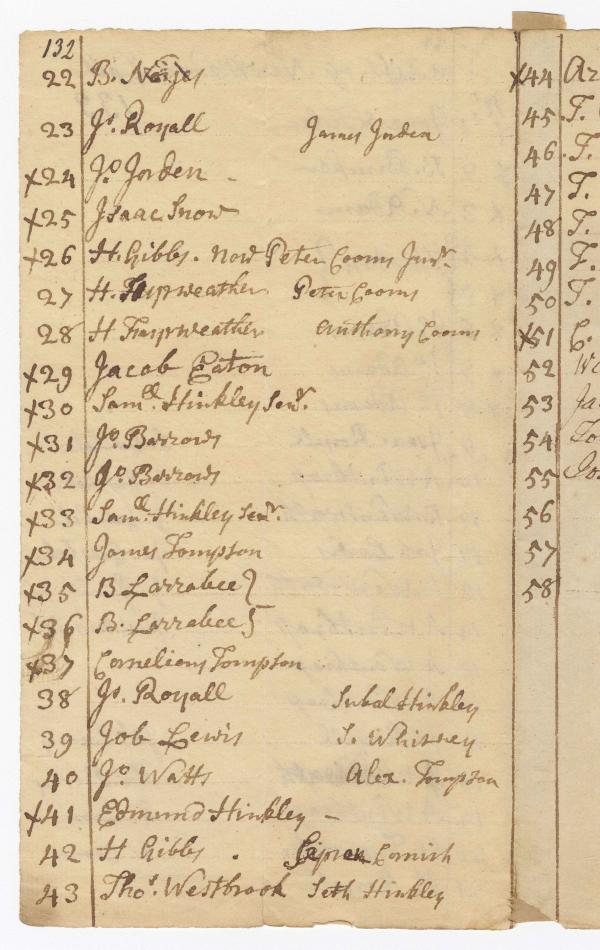 132
22 B. Noyes
23 Js. Royall James Jrden
x24 Jo. Jorden -
x25 Isaac Snow
x26 H. Gibbs. now Peter Cooms Junr.
27 H. Fayrweather Peter Cooms
28 H Fayrweather Anthony Cooms
x29 Jacob Eaton
x30 Samll. Hinkley Senr.
x31 Jo. Barrows
x32 Jo. Barrows
x33 Samll. Hinkley Senr.
x34 James Tompson
x35 B Larrabee }
x36 B. Larrabee }
x37 Cornelious Tompson
38 Js. Royall Subal Hinkley
39 Job Lewis S. Whitney
40 Jo. Watts Alex. Tompson
x41 Edmund Hinkley -
42 H Gibbs . Ciprian Cornish
43 Thos. Westbrook Seth Hinkley
x44
45 T.
46 T.
47 T.
48 T.
49 T.
50 T.
x51 C.
52
53
54
55
56
57
58